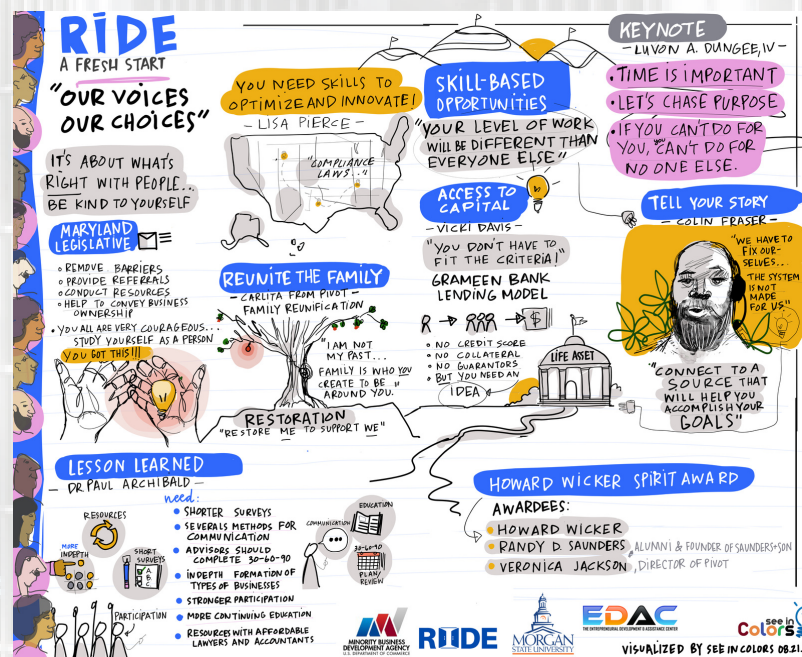 RIDE
A FRESH START
"OUR VOICES
OUR CHOICES"
IT'S ABOUT WHAT'S
RIGHT WITH PEOPLE...
BE KIND TO YOURSELF
MARYLAND
LEGISLATIVE
REMOVE BARRIERS
PROVIDE REFERRALS
CONDUCT RESOURCES
HELP TO CONVEY BUSINESS
OWNERSHIP
YOU ALL ARE VERY COURAGEOUS...
STUDY YOURSELF AS A PERSON
YOU GOT THIS!!!
YOU NEED SKILLS TO
OPTIMIZE AND INNOVATE!
- LISA PIERCE -
"COMPLIANCE
LAWS..."
REUNITE THE FAMILY
- CARLITA FROM PIVOT -
FAMILY REUNIFICATION
"I AM NOT
MY PAST...
FAMILY IS WHO YOU
CREATE TO BE
AROUND YOU."
RESTORATION
"RESTORE ME TO SUPPORT WE"
SKILL-BASED
OPPORTUNITIES
"YOUR LEVEL OF WORK
WILL BE DIFFERENT THAN
EVERYONE ELSE"
ACCESS TO
CAPITAL
- VICKI DAVIS -
"YOU DON'T HAVE TO
FIT THE CRITERIA!"
GRAMEEN BANK
LENDING MODEL
$
NO CREDIT SCORE
NO COLLATERAL
NO GUARANTORS
BUT YOU NEED AN
IDEA
LIFE ASSET
KEYNOTE
- LUVON A. DUNGEE, IV -
• TIME IS IMPORTANT
• LET'S CHASE PURPOSE
• IF YOU CAN'T DO FOR
YOU, YOU CAN'T DO FOR
NO ONE ELSE.
TELL YOUR STORY
- COLIN FRASER -
"WE HAVE TO
FIX OUR-
SELVES...
THE SYSTEM
IS NOT
MADE
FOR US"
"CONNECT TO A
SOURCE THAT
WILL HELP YOU
ACCOMPLISH YOUR
GOALS"
LESSON LEARNED
- DR. PAUL ARCHIBALD -
RESOURCES
MORE
INDEPTH
SHORT
SURVEYS
A
B
C
PARTICIPATION
need:
• SHORTER SURVEYS
• SEVERALS METHODS FOR
COMMUNICATION
• ADVISORS SHOULD
COMPLETE 30-60-90
• INDEPTH FORMATION OF
TYPES OF BUSINESSES
• STRONGER PARTICIPATION
• MORE CONTINUING EDUCATION
• RESOURCES WITH AFFORDABLE
LAWYERS AND ACCOUNTANTS
EDUCATION
COMMUNICATION
30-60-90
PLAN/
REVIEW
HOWARD WICKER SPIRIT AWARD
AWARDEES:
• HOWARD WICKER
• RANDY D. SAUNDERS, ALUMNI & FOUNDER OF SAUNDERS+SON
• VERONICA JACKSON, DIRECTOR OF PIVOT
MINORITY BUSINESS
DEVELOPMENT AGENCY
U.S. DEPARTMENT OF COMMERCE
RIIDE
MORGAN
STATE UNIVERSITY
EDAC
THE ENTREPRENEURIAL DEVELOPMENT & ASSISTANCE CENTER
see in
Colors
VISUALIZED BY SEE IN COLORS 08.21.